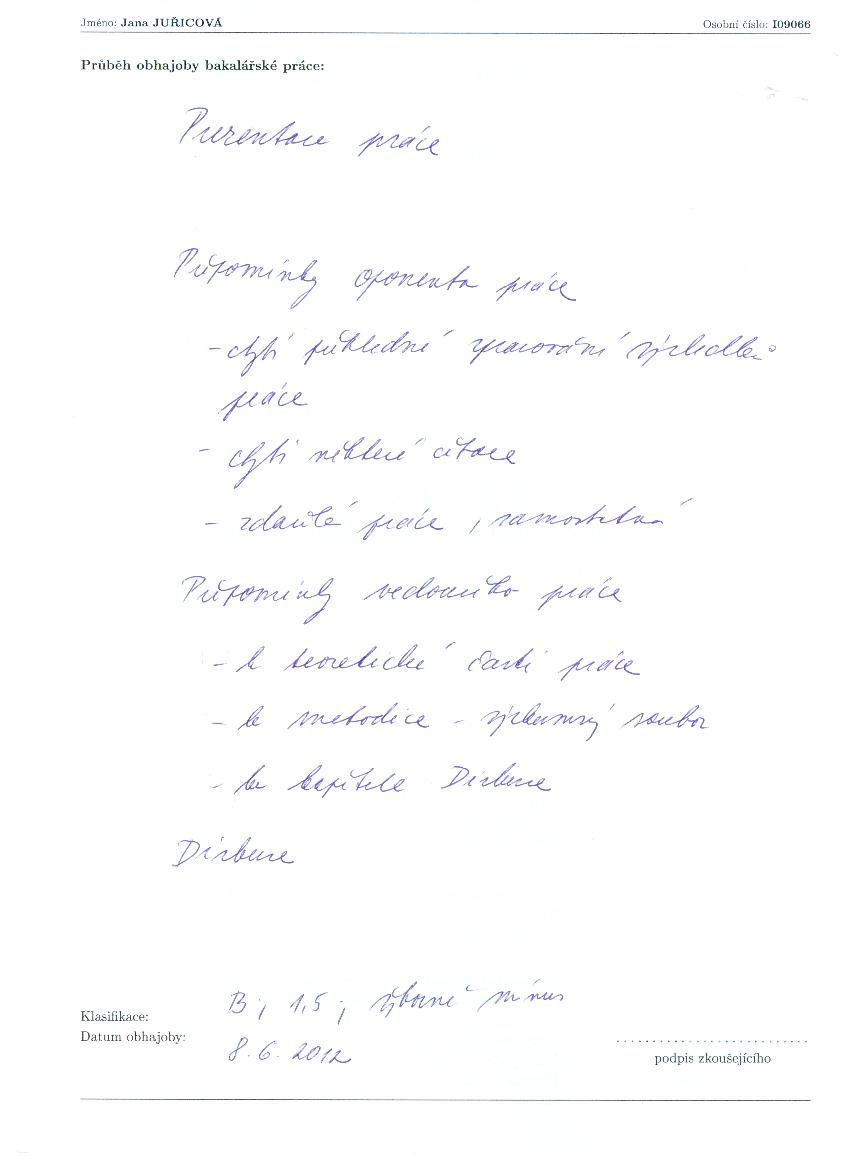 Jméno: Jana JUŘICOVÁ Osobní číslo: I09066
Průběh obhajoby bakalářské práce:
Prezentace práce
Připomínky oponenta práce
- chybí přehledné zpracování výsledků
práce
- chybí některé citace
- zdařilá práce, samostatná
Připomínky vedoucího práce
- k teoretické části práce
- k metodice - výzkumný soubor
- ke kapitole Diskuse
Diskuse
Klasifikace: B; 1,5; výborně mínus
Datum obhajoby: 8.6.2012
podpis zkoušejícího